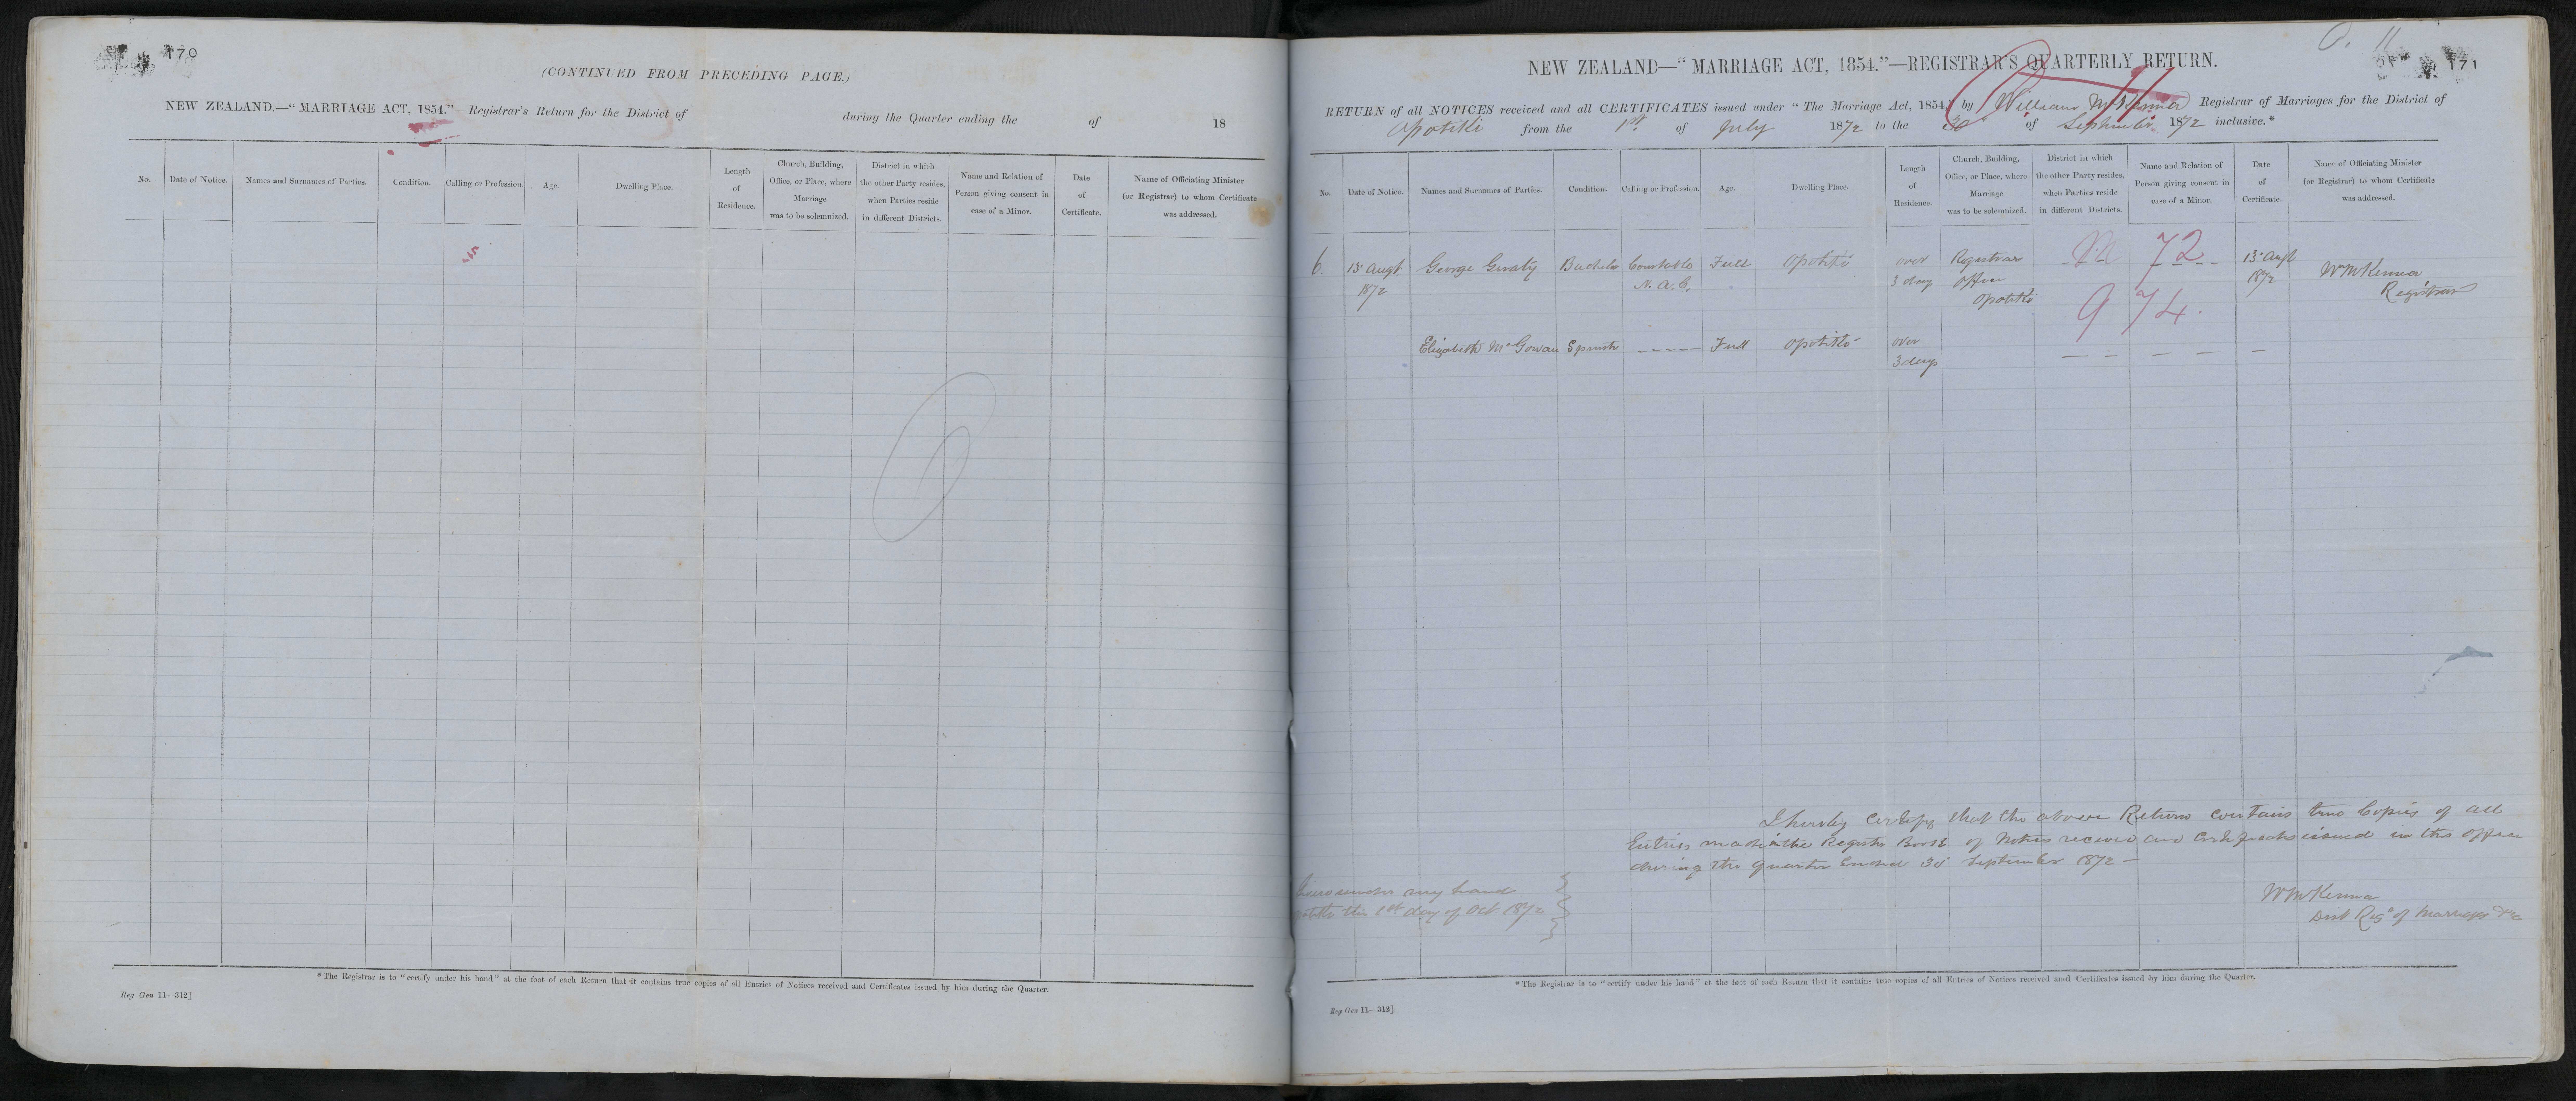 170
(CONTINUED FROM PRECEDING PAGE.)
NEW ZEALAND.—"MARRIAGE ACT, 1854."—Registrar's Return for the District of during the Quarter ending the of 18
No. Date of Notice. Names and Surnames of Parties. Condition. Calling or Profession. Age. Dwelling Place. Length of Residence. Church, Building, Office, or Place, where Marriage was to be solemnized. District in which the other Party resides, when Parties reside in different Districts. Name and Relation of Person giving consent in case of a Minor. Date of Certificate. Name of Officiating Minister (or Registrar) to whom Certificate was addressed.
*The Registrar is to "certify under his hand" at the foot of each Return that it contains true copies of all Entries of Notices received and Certificates issued by him during the Quarter.
Reg Gen 11—312]
171
NEW ZEALAND—"MARRIAGE ACT, 1854."—REGISTRAR'S QUARTERLY RETURN.
RETURN of all NOTICES received and all CERTIFICATES issued under "The Marriage Act, 1854," by William McKenna Registrar of Marriages for the District of
Opotiki from the 1st of July 1872 to the 30 of September 1872 inclusive.*
No. Date of Notice. Names and Surnames of Parties. Condition. Calling or Profession. Age. Dwelling Place. Length of Residence. Church, Building, Office, or Place, where Marriage was to be solemnized. District in which the other Party resides, when Parties reside in different Districts. Name and Relation of Person giving consent in case of a Minor. Date of Certificate. Name of Officiating Minister (or Registrar) to whom Certificate was addressed.
6 13 Augt George Geraty Bachelor Constable Full Opotiki over Registrar 72 13 Augt Wm McKenna
1872 N. A. C. 3 days office 1872 Registrar
Opotiki 974
Elizabeth McGowan Spinster Full Opotiki over
3 days
I hereby certify that the above Return contains true Copies of all
Entries made in the Register Book of Notices received and Certificates issued in this office
during the quarter ended 30 September 1872
under my hand
this 1st day of Oct. 1872
Wm McKenna
Dist Regr of Marriages &c
*The Registrar is to "certify under his hand" at the foot of each Return that it contains true copies of all Entries of Notices received and Certificates issued by him during the Quarter.
Reg Gen 11—312]